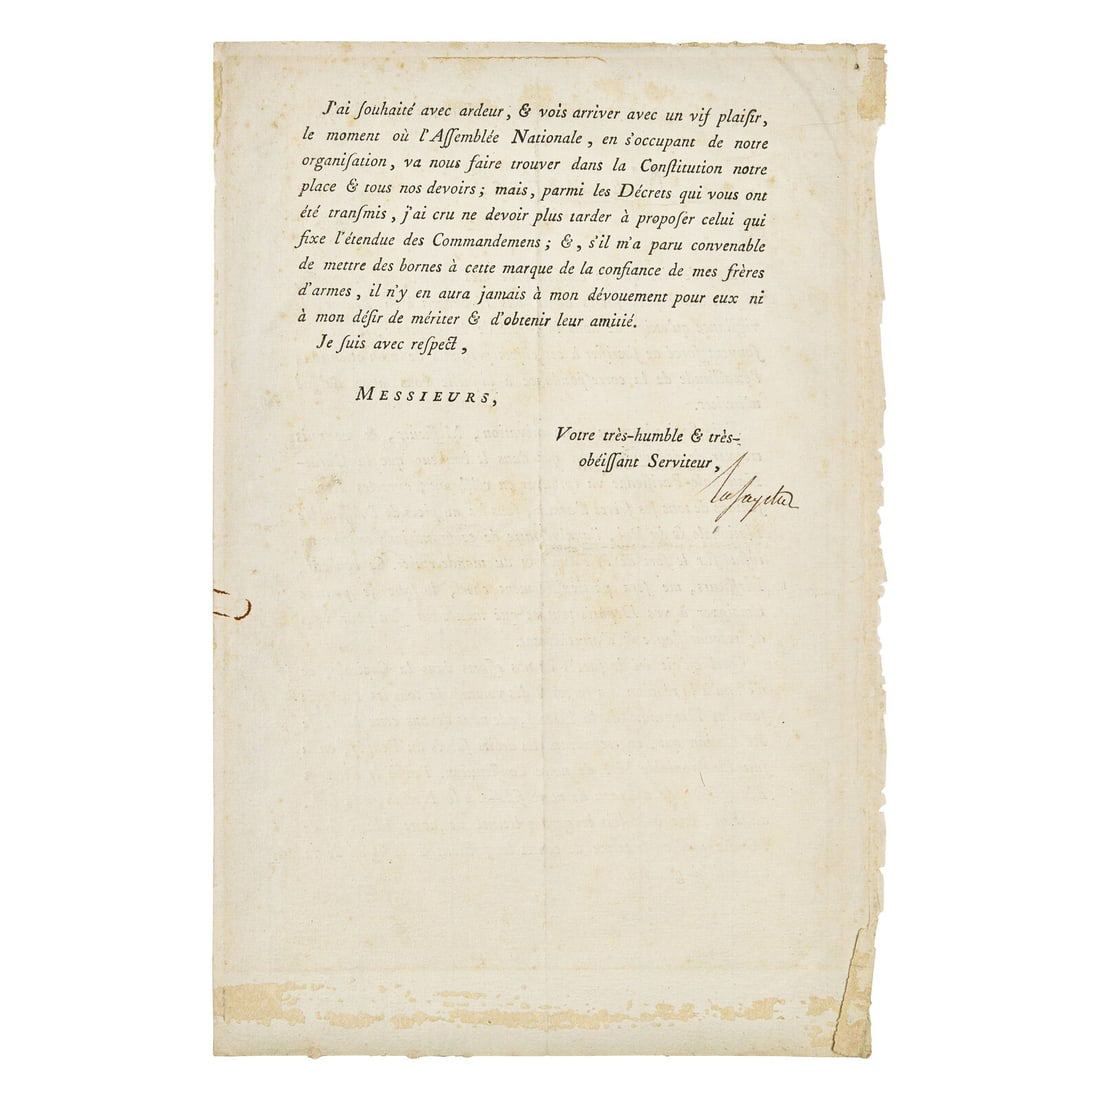 J'ai ſouhaité avec ardeur, & vois arriver avec un vif plaiſir,
le moment où l'Aſſemblée Nationale, en s'occupant de notre
organiſation, va nous faire trouver dans la Conſtitution notre
place & tous nos devoirs; mais, parmi les Décrets qui vous ont
été tranſmis, j'ai cru ne devoir plus tarder à propoſer celui qui
fixe l'étendue des Commandemens; &, s'il m'a paru convenable
de mettre des bornes à cette marque de la confiance de mes frères
d'armes, il n'y en aura jamais à mon dévouement pour eux ni
à mon déſir de mériter & d'obtenir leur amitié.
Je ſuis avec reſpect,
MESSIEURS,
Votre très-humble & très-
obéiſſant Serviteur,
Lafayette